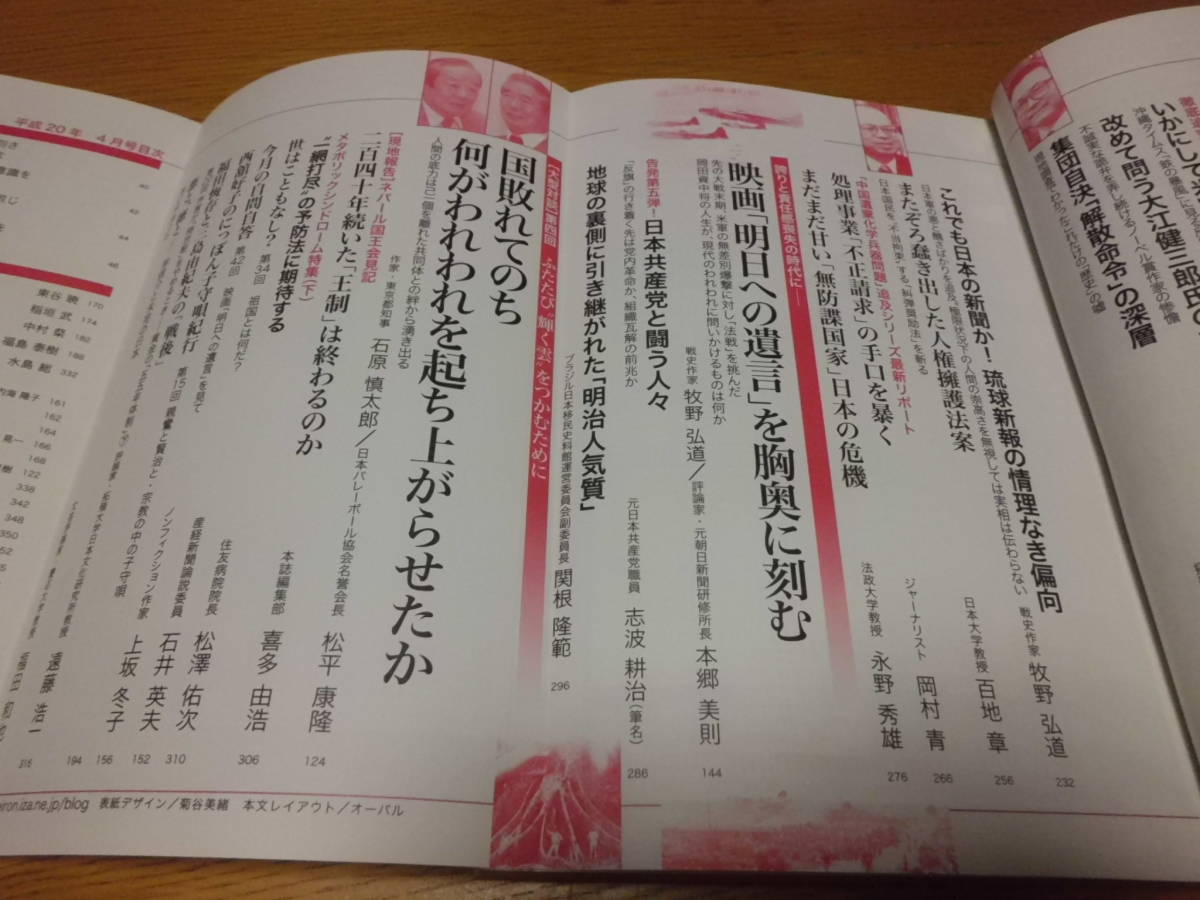 いかにして
沖縄タイムス
改めて問う大江健三郎氏の
ノーベル賞作家の
集団自決「解散命令」の深層
これでも日本の新聞か!琉球新報の情理なき偏向
日本軍の悪と醜さばかりを追及。極限状況下の人間の崇高さを無視しては実相は伝わらない
戦史作家 牧野 弘道
232
またぞろ蠢き出した人権擁護法案
日本国民を“不当拘束”する「糾弾奨励法」を斬る
日本大学教授 百地 章
256
「中国遺棄化学兵器問題」追及シリーズ最新リポート
処理事業「不正請求」の手口を暴く
ジャーナリスト 岡村 青
266
まだまだ甘い「無防諜国家」日本の危機
法政大学教授 永野 秀雄
276
誇りと責任感喪失の時代に―
映画「明日への遺言」を胸奥に刻む
先の大戦末期、米軍の無差別爆撃に対し「法戦」を挑んだ
岡田資中将の人生が、現代のわれわれに問いかけるものは何か
戦史作家 牧野 弘道/評論家・元朝日新聞研修所長 本郷 美則
144
告発第五弾!日本共産党と闘う人々
「反旗」の行き着く先は党内革命か、組織瓦解の前兆か
元日本共産党職員 志波 耕治(筆名)
286
地球の裏側に引き継がれた「明治人気質」
ブラジル日本移民史料館運営委員会副委員長 関根 隆範
296
【大型対談】第四回 ふたたび“輝く雲”をつかむために
国敗れてのち
何がわれわれを起ち上がらせたか
人間の底力は「一個を離れた共同体との絆から湧き出る
作家・東京都知事 石原 慎太郎/日本バレーボール協会名誉会長 松平 康隆
124
【現地報告】ネパール国王会見記
二百四十年続いた「王制」は終わるのか
本誌編集部 喜多 由浩
306
メタボリックシンドローム特集(下)
“一網打尽”の予防法に期待する
住友病院院長 松澤 佑次
310
世はこともなし? 第34回 祖国とは何だ?
産経新聞論説委員 石井 英夫
152
今月の自問自答 第42回 映画「明日への遺言」を見て
ノンフィクション作家 上坂 冬子
156
西舘好子のにっぽん子守唄紀行 第15回 親鸞と賢治と・宗教の中の子守唄
194
拓殖大学日本文化研究所教授 遠藤 浩一
316
平成20年 4月号目次
40
43
44
46
東谷 暁 170
稲垣 武 174
中村 粲 182
福島 泰樹 188
水島 総 332
内海 陽子 161
162
164
166
168
122
338
342
348
350
eiron.iza.ne.jp/blog 表紙デザイン/菊谷美緒 本文レイアウト/オーバル